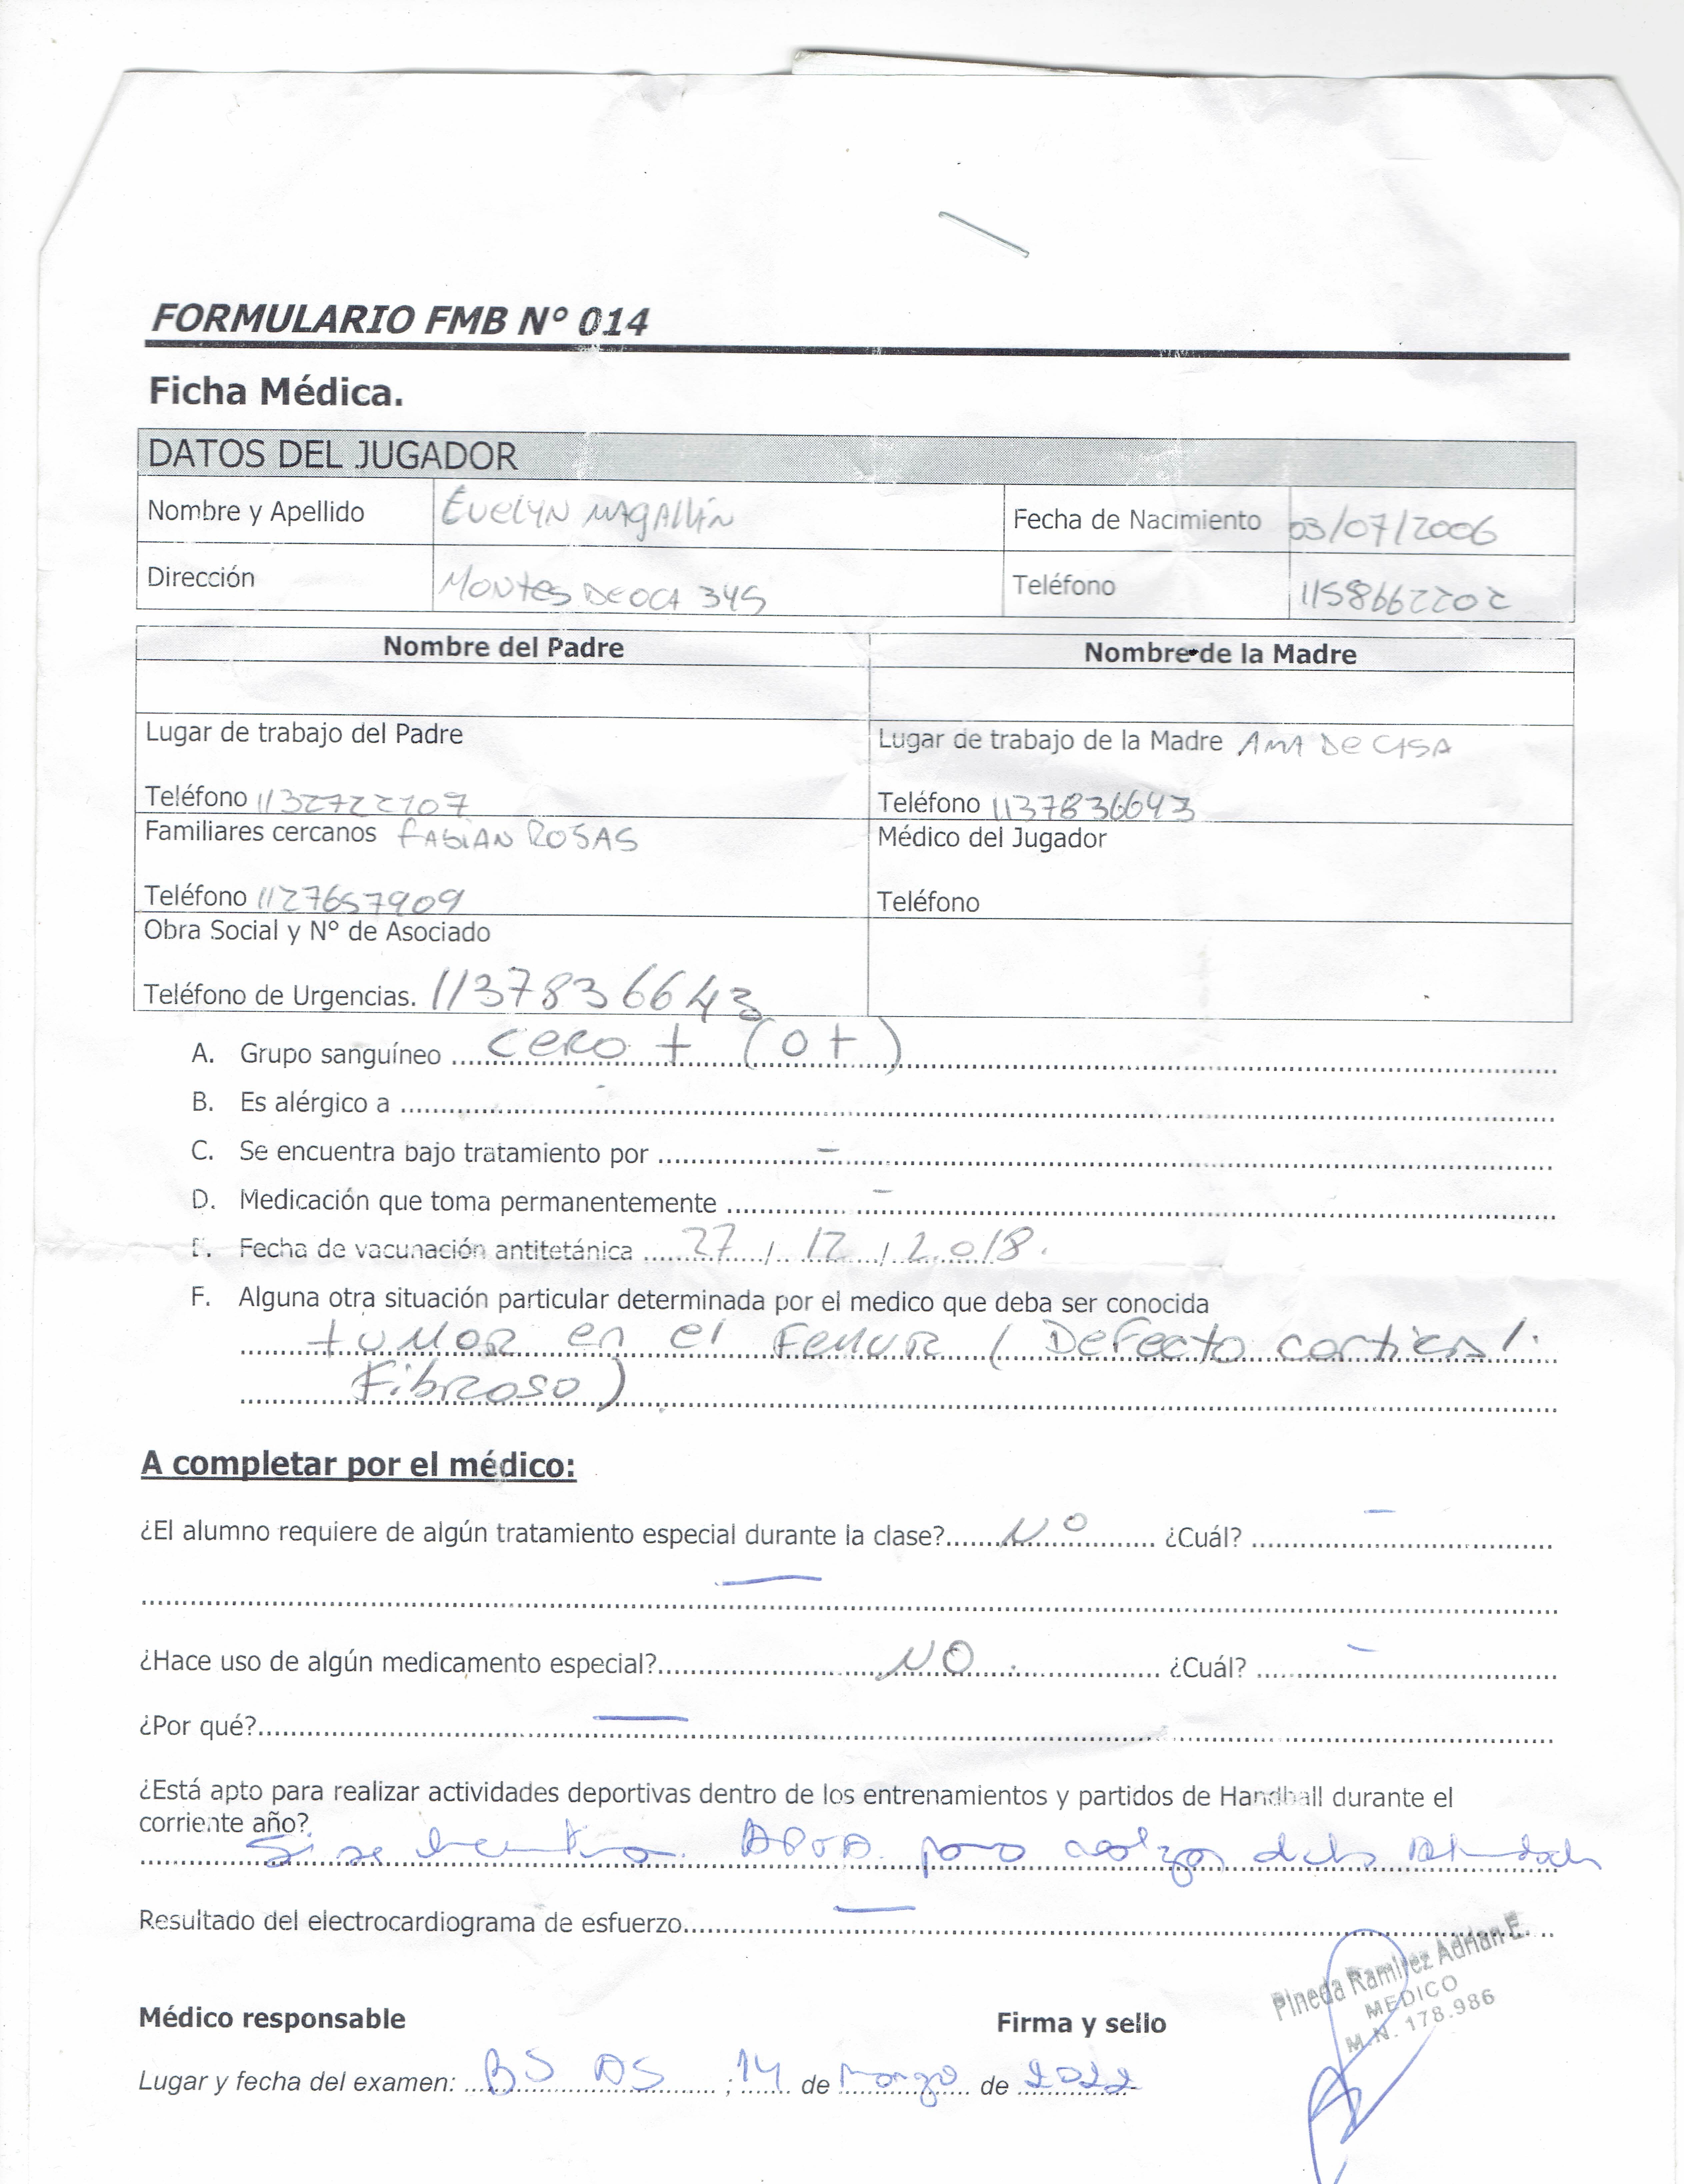 FORMULARIO FMB N° 014
Ficha Médica.
DATOS DEL JUGADOR
Nombre y Apellido Evelyn Magallán Fecha de Nacimiento 03/07/2006
Dirección Montes de oca 345 Teléfono 1158662202
Nombre del Padre Nombre de la Madre
Lugar de trabajo del Padre Lugar de trabajo de la Madre AMA DE CASA
Teléfono 1132722107 Teléfono 1137836643
Familiares cercanos FABIAN ROSAS Médico del Jugador
Teléfono 1127657909 Teléfono
Obra Social y N° de Asociado
Teléfono de Urgencias. 1137836643
A. Grupo sanguíneo cero + (0+)
B. Es alérgico a -
C. Se encuentra bajo tratamiento por -
D. Medicación que toma permanentemente -
E. Fecha de vacunación antitetánica 27/12/2018.
F. Alguna otra situación particular determinada por el medico que deba ser conocida
tumor en el Femur (Defecto cortical
Fibroso)
A completar por el médico:
¿El alumno requiere de algún tratamiento especial durante la clase? NO ¿Cuál? -
¿Hace uso de algún medicamento especial? NO. ¿Cuál? -
¿Por qué? -
¿Está apto para realizar actividades deportivas dentro de los entrenamientos y partidos de Handball durante el
corriente año?
Si se encuentra APTA para
Resultado del electrocardiograma de esfuerzo -
Pineda Ramirez Adrian E.
MEDICO
M.N. 178.986
Médico responsable Firma y sello
Lugar y fecha del examen: BS AS ; 14 de Marzo de 2022